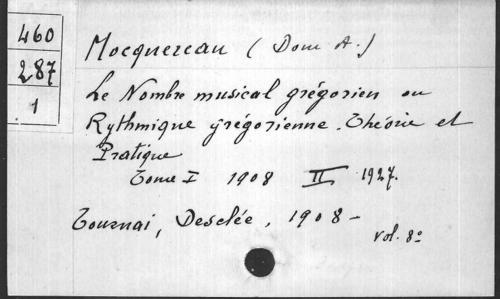 460
287
1
Mocquereau (Dom A.)
Le Nombre musical grégorien ou
Rythmique grégorienne. Théorie et
Pratique
Tome I 1908 II 1927.
Tournai, Desclée, 1908 -
vol. 8º